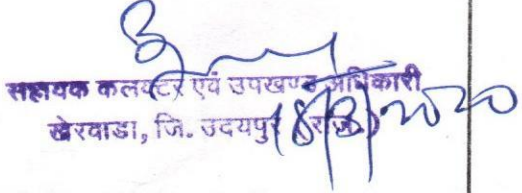 सहायक कलक्टर एवं उपखण्ड अधिकारी
खेरवाडा, जि. उदयपुर (राज.)
18/3/2020